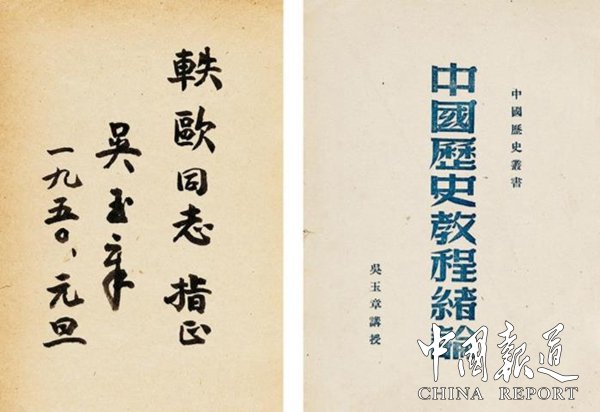 軼歐同志 指正
吳玉章
一九五〇、元旦
中國歷史叢書
中國歷史教程緒論
吳玉章講授
中國報道
CHINA REPORT